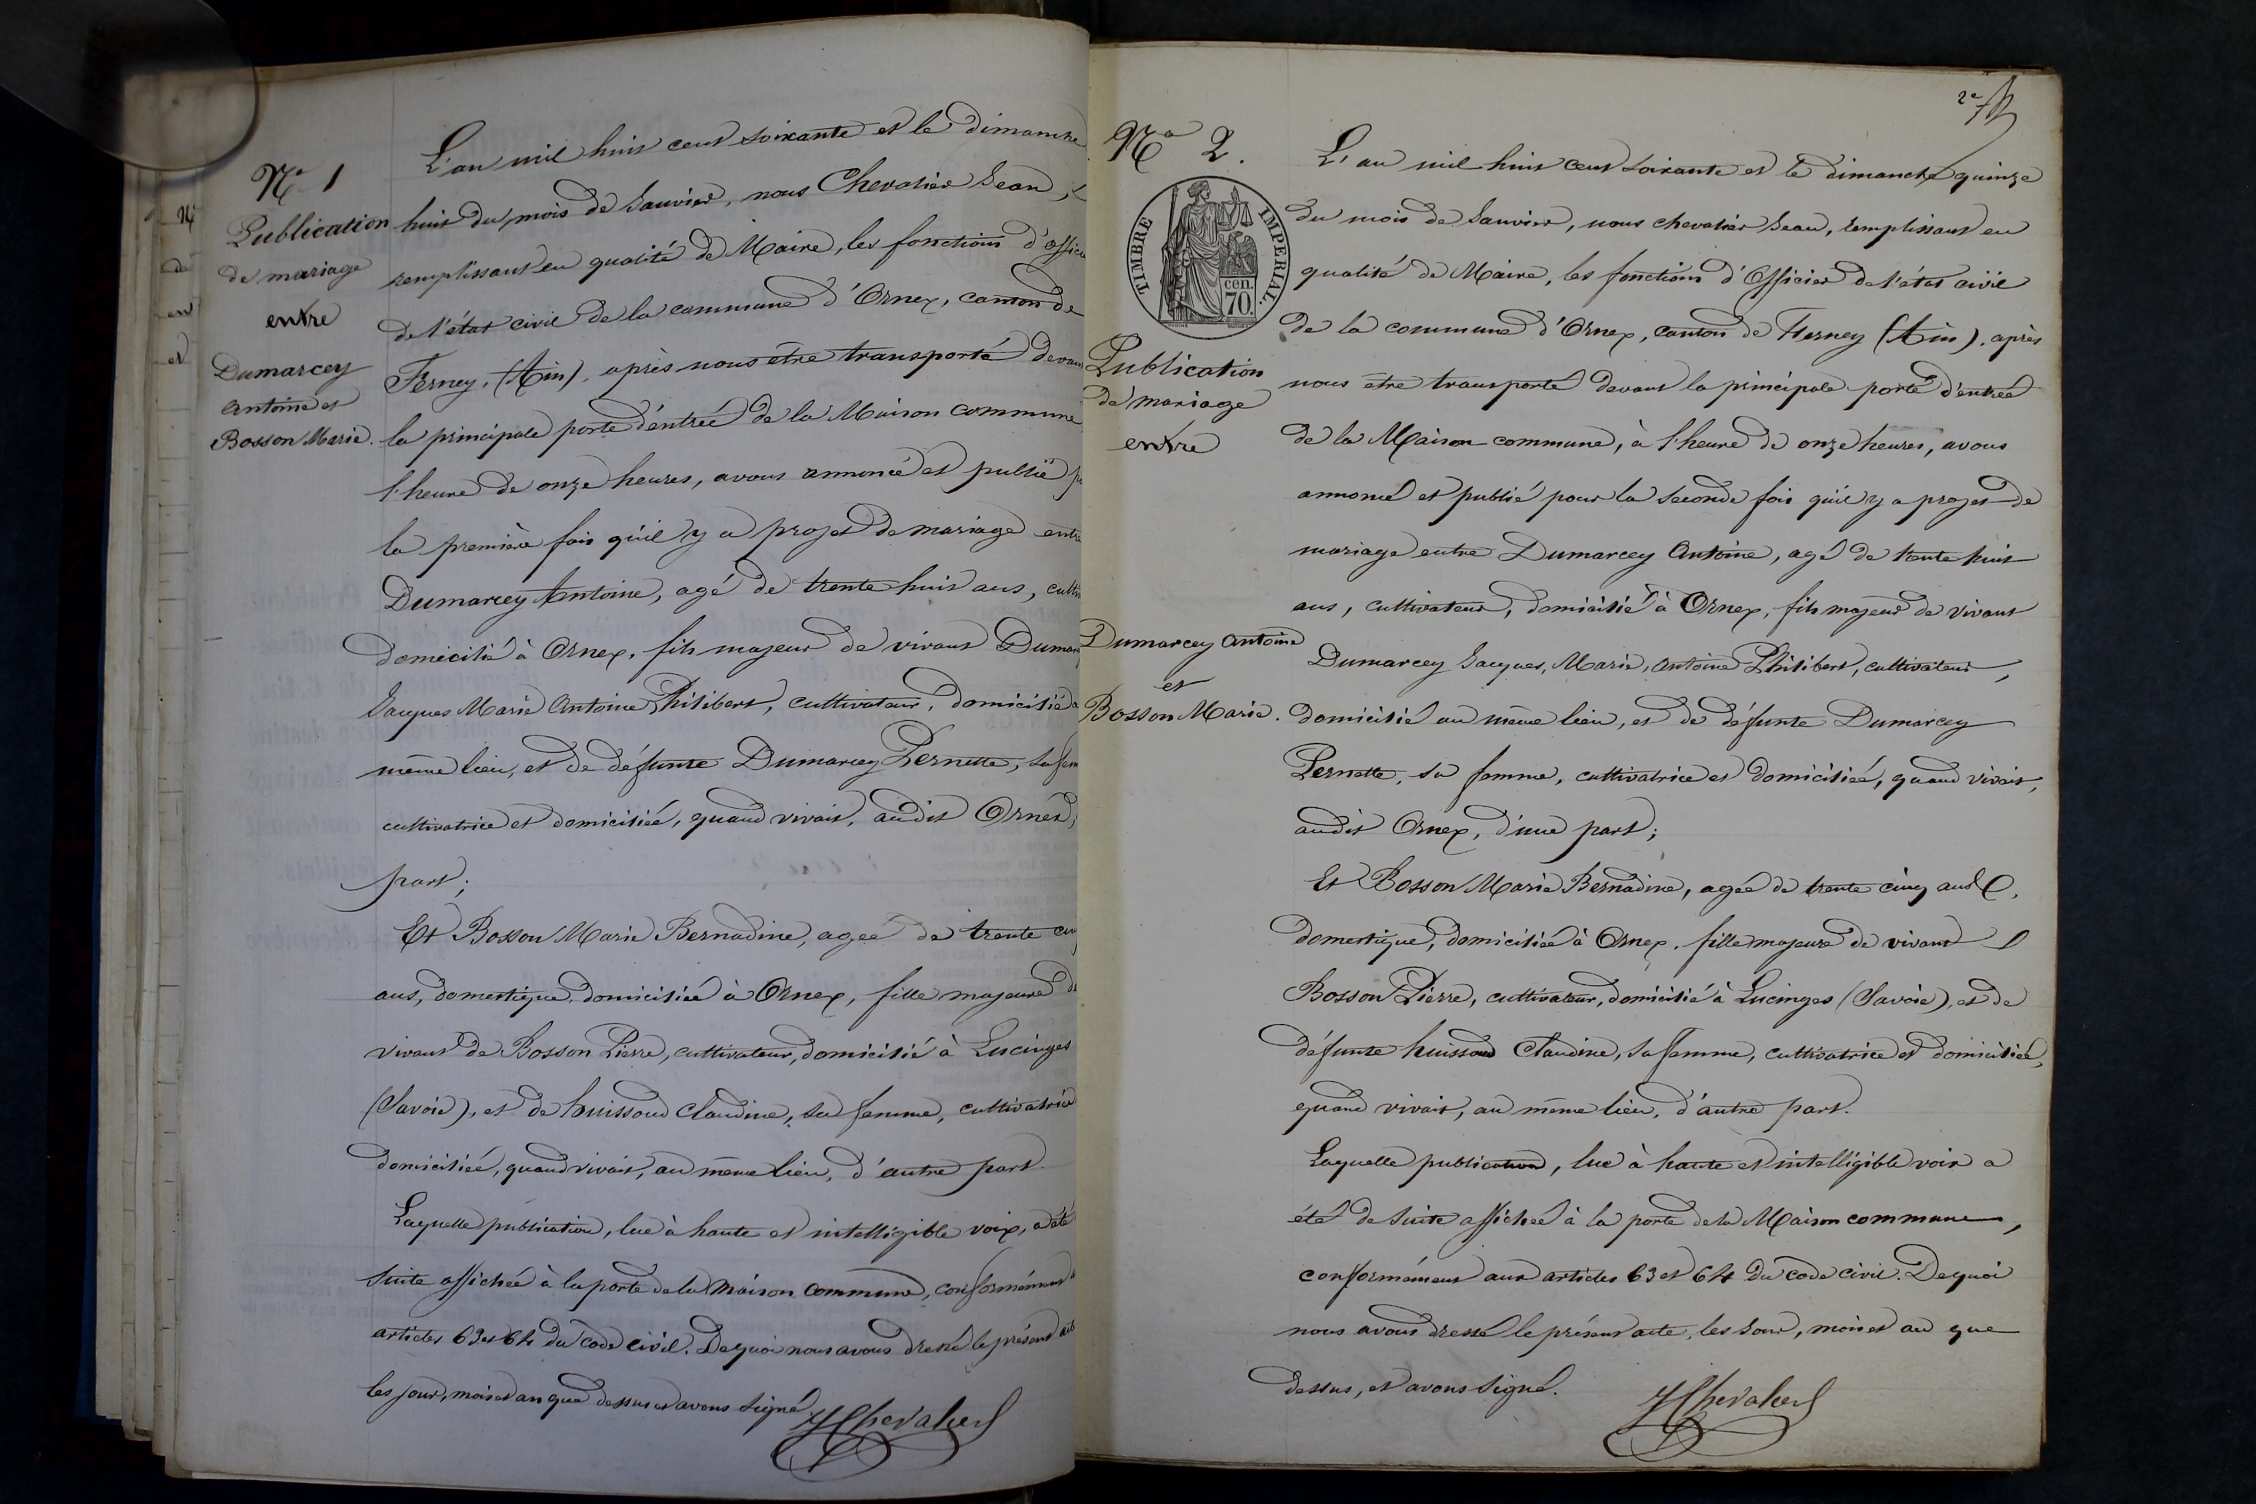 Nº 1
Publication
de mariage
entre
Dumarcey
Antoine et
Bosson Marie.
L'an mil huit cent soixante et le dimanche
huit du mois de Janvier, nous Chevalier Jean,
remplissant en qualité de Maire, les fonctions d'offici
de l'état civil de la commune d'Ornex, canton de
Ferney, (Ain), après nous être transporté devan
la principale porte d'entrée de la Maison commune
l'heure de onze heures, avons annoncé et publié p
la première fois qu'il y a projet de mariage entre
Dumarcey Antoine, agé de trente huit ans, cultiv
domicilié à Ornex, fils majeur de vivant Dumar
Jacques Marie Antoine Philibert, cultivateur, domicilié a
même lieu, et de défunte Dumarcey Pernette, sa fem
cultivatrice et domiciliée, quand vivait, audit Ornex,
part;
Et Bosson Marie Bernadine, agée de trente cinq
ans, domestique, domiciliée à Ornex, fille majeure de
vivant de Bosson Pierre, cultivateur, domicilié à Lucinges
(Savoie), et de huissoud Claudine, sa femme, cultivatrice
domiciliée, quand vivait, au même lieu, d'autre part
Laquelle publication, lue à haute et intelligible voix, a été
suite affichée à la porte de la Maison commune, conformément
articles 63 et 64 du code civil. De quoi nous avons dressé le présent
les jour, mois et an que dessus et avons signé
JChevalier
2e
Nº 2.
TIMBRE IMPERIAL.
cen.
70.
Publication
de mariage
entre
Dumarcey Antoine
et
Bosson Marie.
L'an mil huit cent soixante et le dimanche quinze
du mois de Janvier, nous chevalier Jean, remplissant en
qualité de Maire, les fonctions d'Officier de l'état civil
de la commune d'Ornex, canton de Ferney (Ain), après
nous être transporté devant la principale porte d'entrée
de la Maison commune, à l'heure de onze heures, avons
annoncé et publié pour la seconde fois qu'il y a projet de
mariage entre Dumarcey Antoine, agé de trente huit
ans, cultivateur, domicilié à Ornex, fils majeur de vivant
Dumarcey Jacques, Marie, Antoine Philibert, cultivateur,
domicilié au même lieu, et de défunte Dumarcey
Pernette, sa femme, cultivatrice et domiciliée, quand vivait,
audit Ornex, d'une part;
Et Bosson Marie Bernadine, agée de trente cinq ans
domestique, domiciliée à Ornex, fille majeure de vivant
Bosson Pierre, cultivateur, domicilié à Lucinges (Savoie), et de
défunte huissoud Claudine, sa femme, cultivatrice et domiciliée,
quand vivait, au même lieu, d'autre part.
Laquelle publication, lue à haute et intelligible voix a
été de suite affichée à la porte de la Maison commune,
conformément aux articles 63 et 64 du code civil. De quoi
nous avons dressé le présent acte, les jour, mois et an que
dessus, et avons signé.
JChevalier